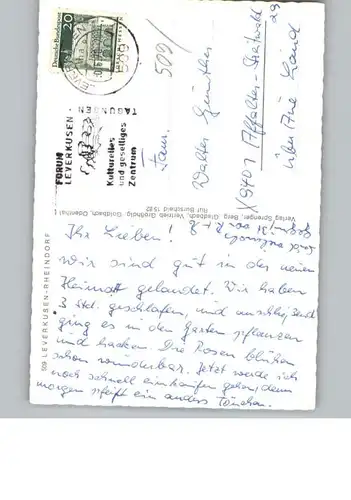 20
Deutsche Bundespost
509/
FORUM
LEVERKUSEN · TAGUNGEN ·
Kulturelles
und geselliges
Zentrum
Fam.
Walter Günther
X9401 Affalter-Streitwald
über Aue Land
29
Verlag Sprenger, Berg. Gladbach, Vertrieb Großholg. Goldbach, Odenthal
Ruf Burscheid 1582
509 LEVERKUSEN-RHEINDORF
Ihr Lieben!
Wir sind gut in der neuen
Heimat gelandet. Wir haben
3 Std. geschlafen, und anschließend
ging es in den Garten pflanzen
und hacken. Die Rosen blühen
schon wunderbar. Jetzt werde ich
noch schnell einkaufen gehen, denn
morgen pfeift ein anders Tönchen.